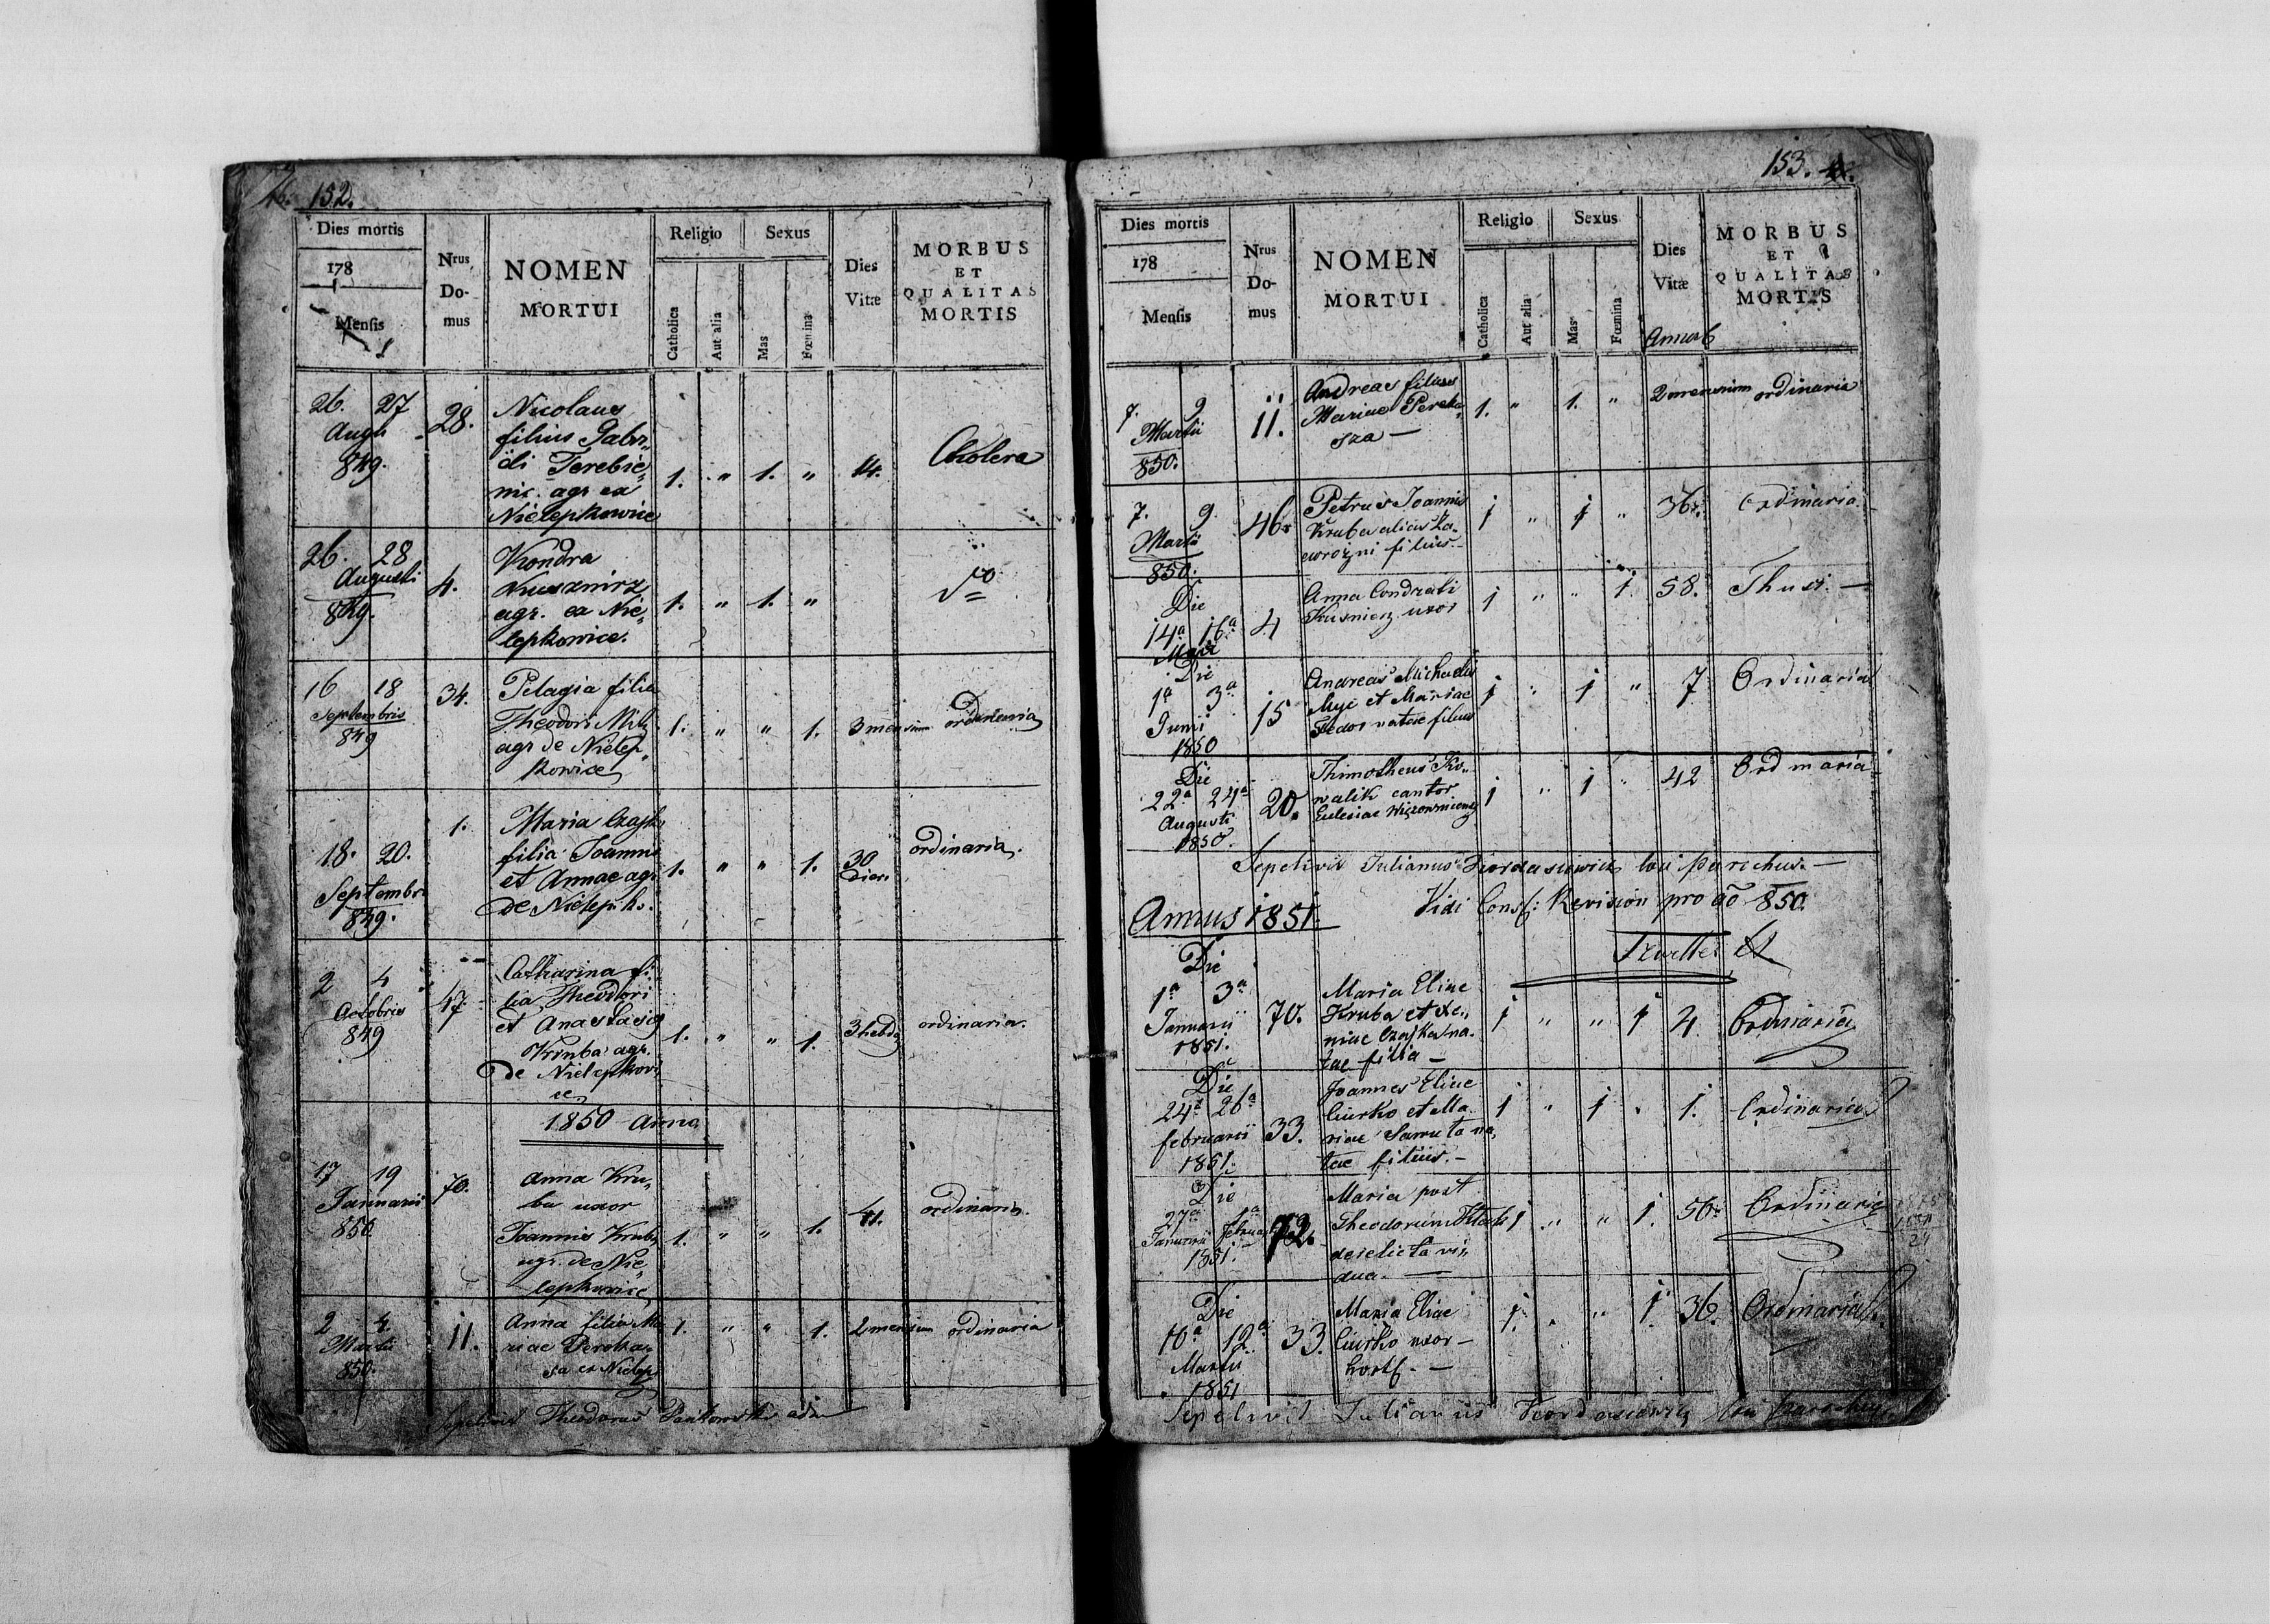 152.
Dies mortis
178
Mensis
Nrus Do-mus
NOMEN
MORTUI
Religio
Sexus
Catholica
Aut alia
Mas
Fœmina
Dies
Vitæ
MORBUS
ET
QUALITAS
MORTIS
26. 27
Augti
849.
28.
Nicolaus
filius Gabri„
eli Terebie„
nic. agr ex
Nielepkowice
1. „ 1. „ 14.
Cholera
26. 28
Augusti
849.
4.
Kondra
Kusznirz
agr. ex Nie„
lepkowice.
1. „ 1. „
do
16 18
Septembris
849
34.
Pelagia filia
Theodori
agr de Nielep„
kowice
1. „ „ 1. 3 mensium ordinaria
18. 20.
Septembr
849.
1.
Maria Czajk
filia Joannis
et Annae agr
de Nielepko.
1. „ „ 1. 30
Dier.
ordinaria.
2 4
Octobris
849
47.
Catharina fi„
lia Theodori
et Anastasia
Kruba agr.
de Nielepkowi
ce
1. „ „ 1. 3 hebd
ordinaria.
1850 Anno
17 19
Januarii
850
70.
Anna Kru„
ba uxor
Joannis Kruba
agr. de Nie„
lepkowice
1. „ „ 1. 41.
ordinaria.
2 4.
Martii
850.
11.
Anna filia Ma
riae Pereka„
sza ex Nielep
1. „ „ 1. 2 mensium ordinaria
Sepelivit Theodorus adm
153.
Dies mortis
178
Mensis
Nrus Do-mus
NOMEN
MORTUI
Religio
Sexus
Catholica
Aut alia
Mas
Fœmina
Dies
Vitæ
MORBUS
ET
QUALITAS
MORTIS
9
Martii
850.
11.
Andreas filius
Mariae Pereka„
sza —
1. „ 1. „ 2 mensium ordinaria
7. 9
Martii
850.
46.
Petrus Joannis
Kruba alias
filius. —
1 „ 1 „ 36. Ordinaria.
Die
14a 16a
Maji
4
Anna Condrati
Kusnierz uxor
1 „ „ 1. 58. Thusi. —
Die
1a 3a
Junii
1850
15
Andreas Michaelis
et Mariae
Fedor natae filius
1 „ 1 „ 7 Ordinaria
Die
22a 24a
Augusti
1850.
20.
Thimotheus Ko„
walik cantor
Eclesiae
1 „ 1 „ 42 Ordinaria
Sepelivit Julianus Hordasiewicz loci parochus. —
Vidi Revision pro ao 850.
Annus 1851.
Die
1a 3a
Januarii
1851.
70.
Maria Eliae
Kruba et Xe„
niae Czajka na„
tae filia —
1 „ „ 1 4. Ordinaria
Die
24a 26a
februarii
1851.
33.
Joannes Eliae
Ciurko et Ma„
riae na„
tae filius. —
1 „ 1 „ 1. Ordinaria
Die
27a 1a
Januarii Februarii
1851.
72.
Maria post
Theodorum
derelicta vi„
dua. —
1 „ „ 1. 56. Ordinaria
Die
10a 12a
Martii
1851
33.
Maria Eliae
Ciurko uxor —
1. „ „ 1. 36. Ordinaria
Sepelivit Julianus Hordasiewicz loci parochus.